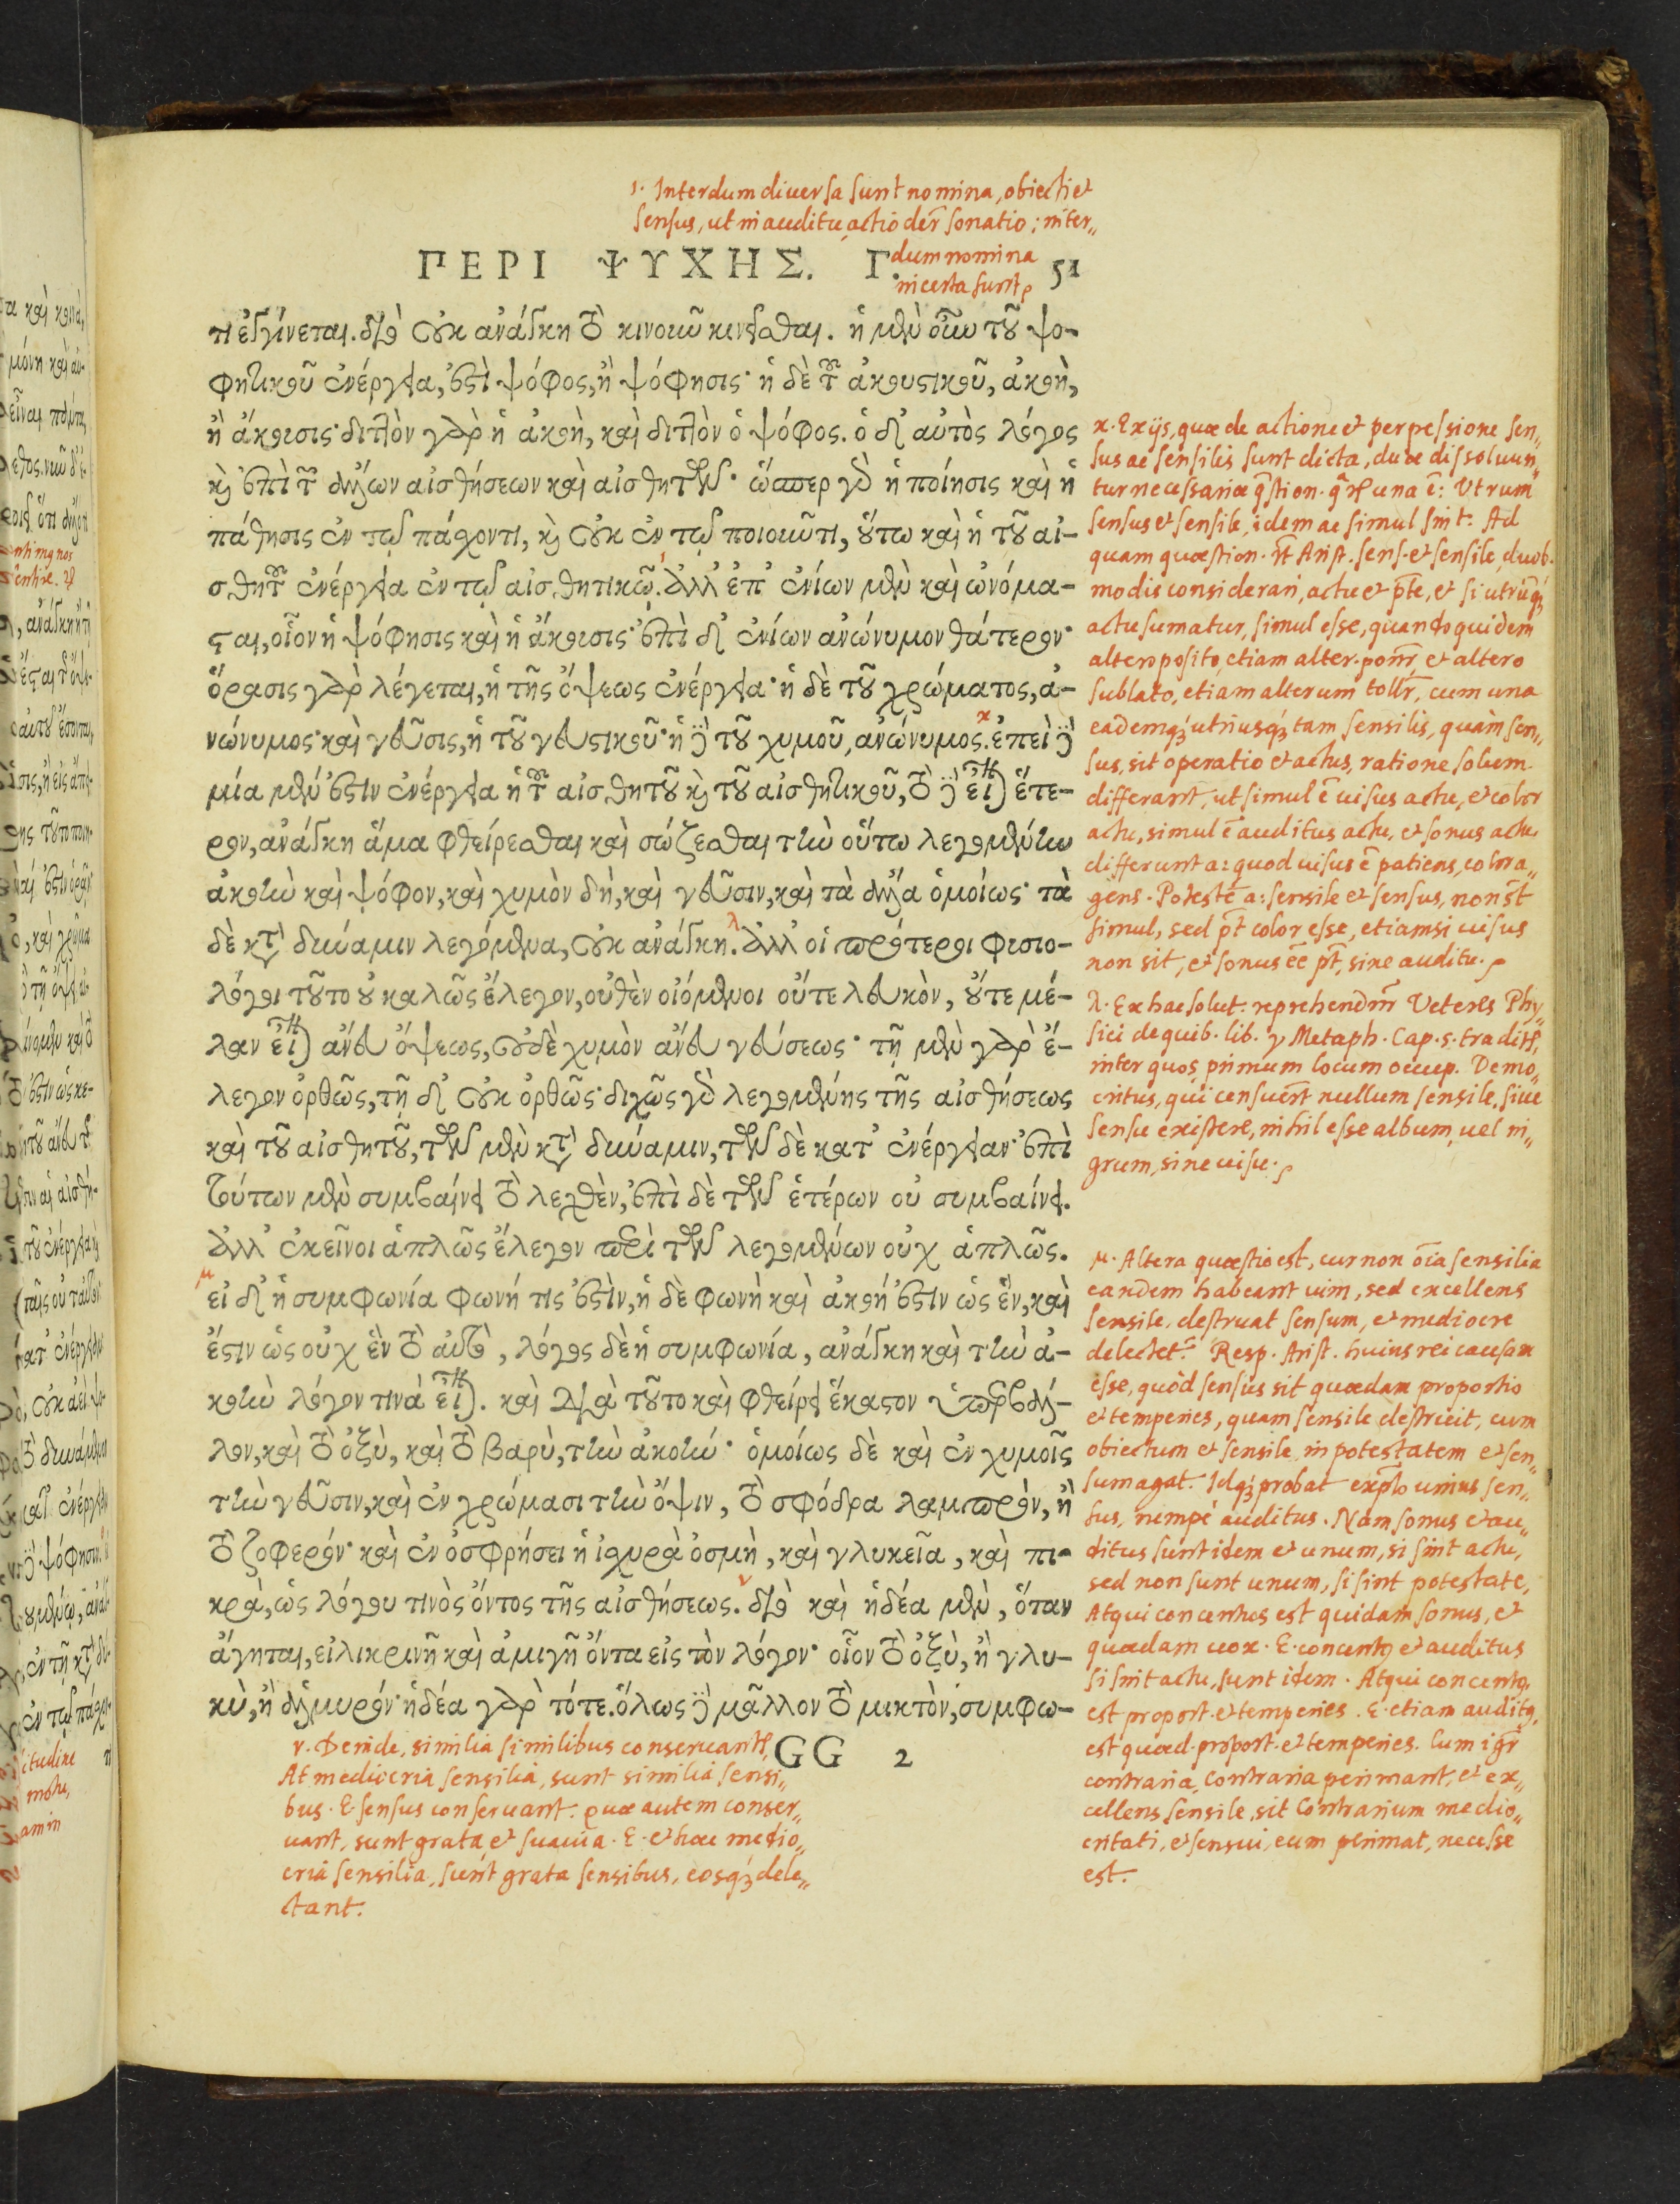 1. Interdum diuersa sunt nomina, obiecti et
sensus, ut in auditu, actio der̃ sonatio; inter„
dum nomina
incerta sunt.
ΠΕΡΙ ΨΥΧΗΣ. Γ. 51
τι ἐγγίνεται. διὸ οὐκ ἀνάγκη τὸ κινοῦν κινεῖσθαι. ἡ μὲν οὖν τοῦ ψο-
φητικοῦ ἐνέργεια, ἐστὶ ψόφος, ἢ ψόφησις· ἡ δὲ τοῦ ἀκουστικοῦ, ἀκοὴ,
ἢ ἄκουσις· διττὸν γὰρ ἡ ἀκοὴ, καὶ διττὸν ὁ ψόφος. ὁ δ' αὐτὸς λόγος
καὶ ἐπὶ τῶν ἄλλων αἰσθήσεων καὶ αἰσθητῶν· ὥσπερ γὰρ ἡ ποίησις καὶ ἡ
πάθησις ἐν τῷ πάσχοντι, καὶ οὐκ ἐν τῷ ποιοῦντι, οὕτω καὶ ἡ τοῦ αἰ-
σθητοῦ ἐνέργεια ἐν τῷ αἰσθητικῷ. ἀλλ' ἐπ' ἐνίων μὲν καὶ ὠνόμα-
σται, οἷον ἡ ψόφησις καὶ ἡ ἄκουσις· ἐπὶ δ' ἐνίων ἀνώνυμον θάτερον·
ὅρασις γὰρ λέγεται, ἡ τῆς ὄψεως ἐνέργεια· ἡ δὲ τοῦ χρώματος, ἀ-
νώνυμος· καὶ γεῦσις, ἡ τοῦ γευστικοῦ· ἡ δὲ τοῦ χυμοῦ, ἀνώνυμος. ἐπεὶ δὲ
μία μέν ἐστιν ἐνέργεια ἡ τοῦ αἰσθητοῦ καὶ τοῦ αἰσθητικοῦ, τὸ δὲ εἶναι ἕτε-
ρον, ἀνάγκη ἅμα φθείρεσθαι καὶ σώζεσθαι τὴν οὕτω λεγομένην
ἀκοὴν καὶ ψόφον, καὶ χυμὸν δὴ, καὶ γεῦσιν, καὶ τὰ ἄλλα ὁμοίως· τὰ
δὲ κατὰ δύναμιν λεγόμενα, οὐκ ἀνάγκη. ἀλλ' οἱ πρότεροι φυσιο-
λόγοι τοῦτο οὐ καλῶς ἔλεγον, οὐθὲν οἰόμενοι οὔτε λευκὸν, οὔτε μέ-
λαν εἶναι ἄνευ ὄψεως, οὐδὲ χυμὸν ἄνευ γεύσεως· τῇ μὲν γὰρ ἔ-
λεγον ὀρθῶς, τῇ δ' οὐκ ὀρθῶς· διχῶς γὰρ λεγομένης τῆς αἰσθήσεως
καὶ τοῦ αἰσθητοῦ, τῶν μὲν κατὰ δύναμιν, τῶν δὲ κατ' ἐνέργειαν· ἐπὶ
τούτων μὲν συμβαίνει τὸ λεχθὲν, ἐπὶ δὲ τῶν ἑτέρων οὐ συμβαίνει.
ἀλλ' ἐκεῖνοι ἁπλῶς ἔλεγον περὶ τῶν λεγομένων οὐχ ἁπλῶς.
εἰ δ' ἡ συμφωνία φωνή τις ἐστὶν, ἡ δὲ φωνὴ καὶ ἀκοή ἐστιν ὡς ἓν, καὶ
ἔστιν ὡς οὐχ ἓν τὸ αὐτὸ, λόγος δὲ ἡ συμφωνία, ἀνάγκη καὶ τὴν ἀ-
κοὴν λόγον τινὰ εἶναι. καὶ διὰ τοῦτο καὶ φθείρει ἕκαστον ὑπερβάλ-
λον, καὶ τὸ ὀξὺ, καὶ τὸ βαρὺ, τὴν ἀκοήν· ὁμοίως δὲ καὶ ἐν χυμοῖς
τὴν γεῦσιν, καὶ ἐν χρώμασι τὴν ὄψιν, τὸ σφόδρα λαμπρὸν, ἢ
τὸ ζοφερόν· καὶ ἐν ὀσφρήσει ἡ ἰσχυρὰ ὀσμὴ, καὶ γλυκεῖα, καὶ πι-
κρὰ, ὡς λόγου τινὸς ὄντος τῆς αἰσθήσεως. διὸ καὶ ἡδέα μὲν, ὅταν
ἄγηται, εἰλικρινῆ καὶ ἀμιγῆ ὄντα εἰς τὸν λόγον· οἷον τὸ ὀξὺ, ἢ γλυ-
κὺ, ἢ ἁλμυρόν· ἡδέα γὰρ τότε. ὅλως δὲ μᾶλλον τὸ μικτὸν, συμφω-
GG 2
ν. Deinde, similia similibus conseruantr,
At mediocria sensilia, sunt similia sensi„
bus. E. sensus conseruant. quae autem conser„
uant, sunt grata et suauia. E. et haec medio„
cria sensilia, sunt grata sensibus, eosq3 dele„
ctant.
κ. Ex ijs, quae de actione et perpessione sen„
sus ac sensilis sunt dicta, duae dissoluun„
tur necessariae q̃stion. quar. una ẽ: Vtrum
sensus et sensile, idem ac simul sint. Ad
quam quaestion. rñt Arist. sens. et sensile duob.
modis considerari, actu et p̃te, et si utrũq3
actu sumatur, simul esse, quandoquidem
altero posito, etiam alter. ponr̃ et altero
sublato, etiam alterum tollr̃, cum una
eademq3 utriusq3 tam sensilis, quàm sen„
sus, sit operatio et actus, ratione solum
differant, ut simul ẽ uisus actu, et color
actu, simul ẽ auditus actu, et sonus actu
differunt a: quod uisus ẽ patiens, color a„
gens. Potestẽ a: sensile et sensus, non s̃t
simul, sed p̃t color esse, etiamsi uisus
non sit, et sonus eẽ p̃t, sine auditu.
λ. Ex hac solut. reprehendunr̃ Veteres Phy„
sici de quib. lib. γ Metaph. Cap. 5. traditr,
inter quos primum locum occup. Demo„
critus, qui censuerñt nullum sensile, siue
sensu existere, nihil esse album, uel ni„
grum, sine uisu.
μ. Altera quaestio est, cur non oĩa sensilia
eandem habeant uim, sed excellens
sensile, destruat sensum, et mediocre
delectet. Resp. Arist. huius rei causam
esse, quòd sensus sit quaedam proportio
et temperies, quam sensile destruit, cum
obiectum et sensile in potestatem et sen„
sum agat. Idq3 probat exp̃lo unius sen„
sus, nempè auditus. Nam sonus et au„
ditus sunt idem et unum, si sint actu,
sed non sunt unum, si sint potestate,
Atqui concentus est quidam sonus, et
quaedam uox. E. concentus et auditus
si sint actu, sunt idem. Atqui concentus
est proport. et temperies. E. etiam auditus
est quaed. proport. et temperies. Cum igr̃
contraria, Contraria perimant, et ex„
cellens sensile, sit Contrarium medio„
critati, et sensui, eum perimat, necesse
est.